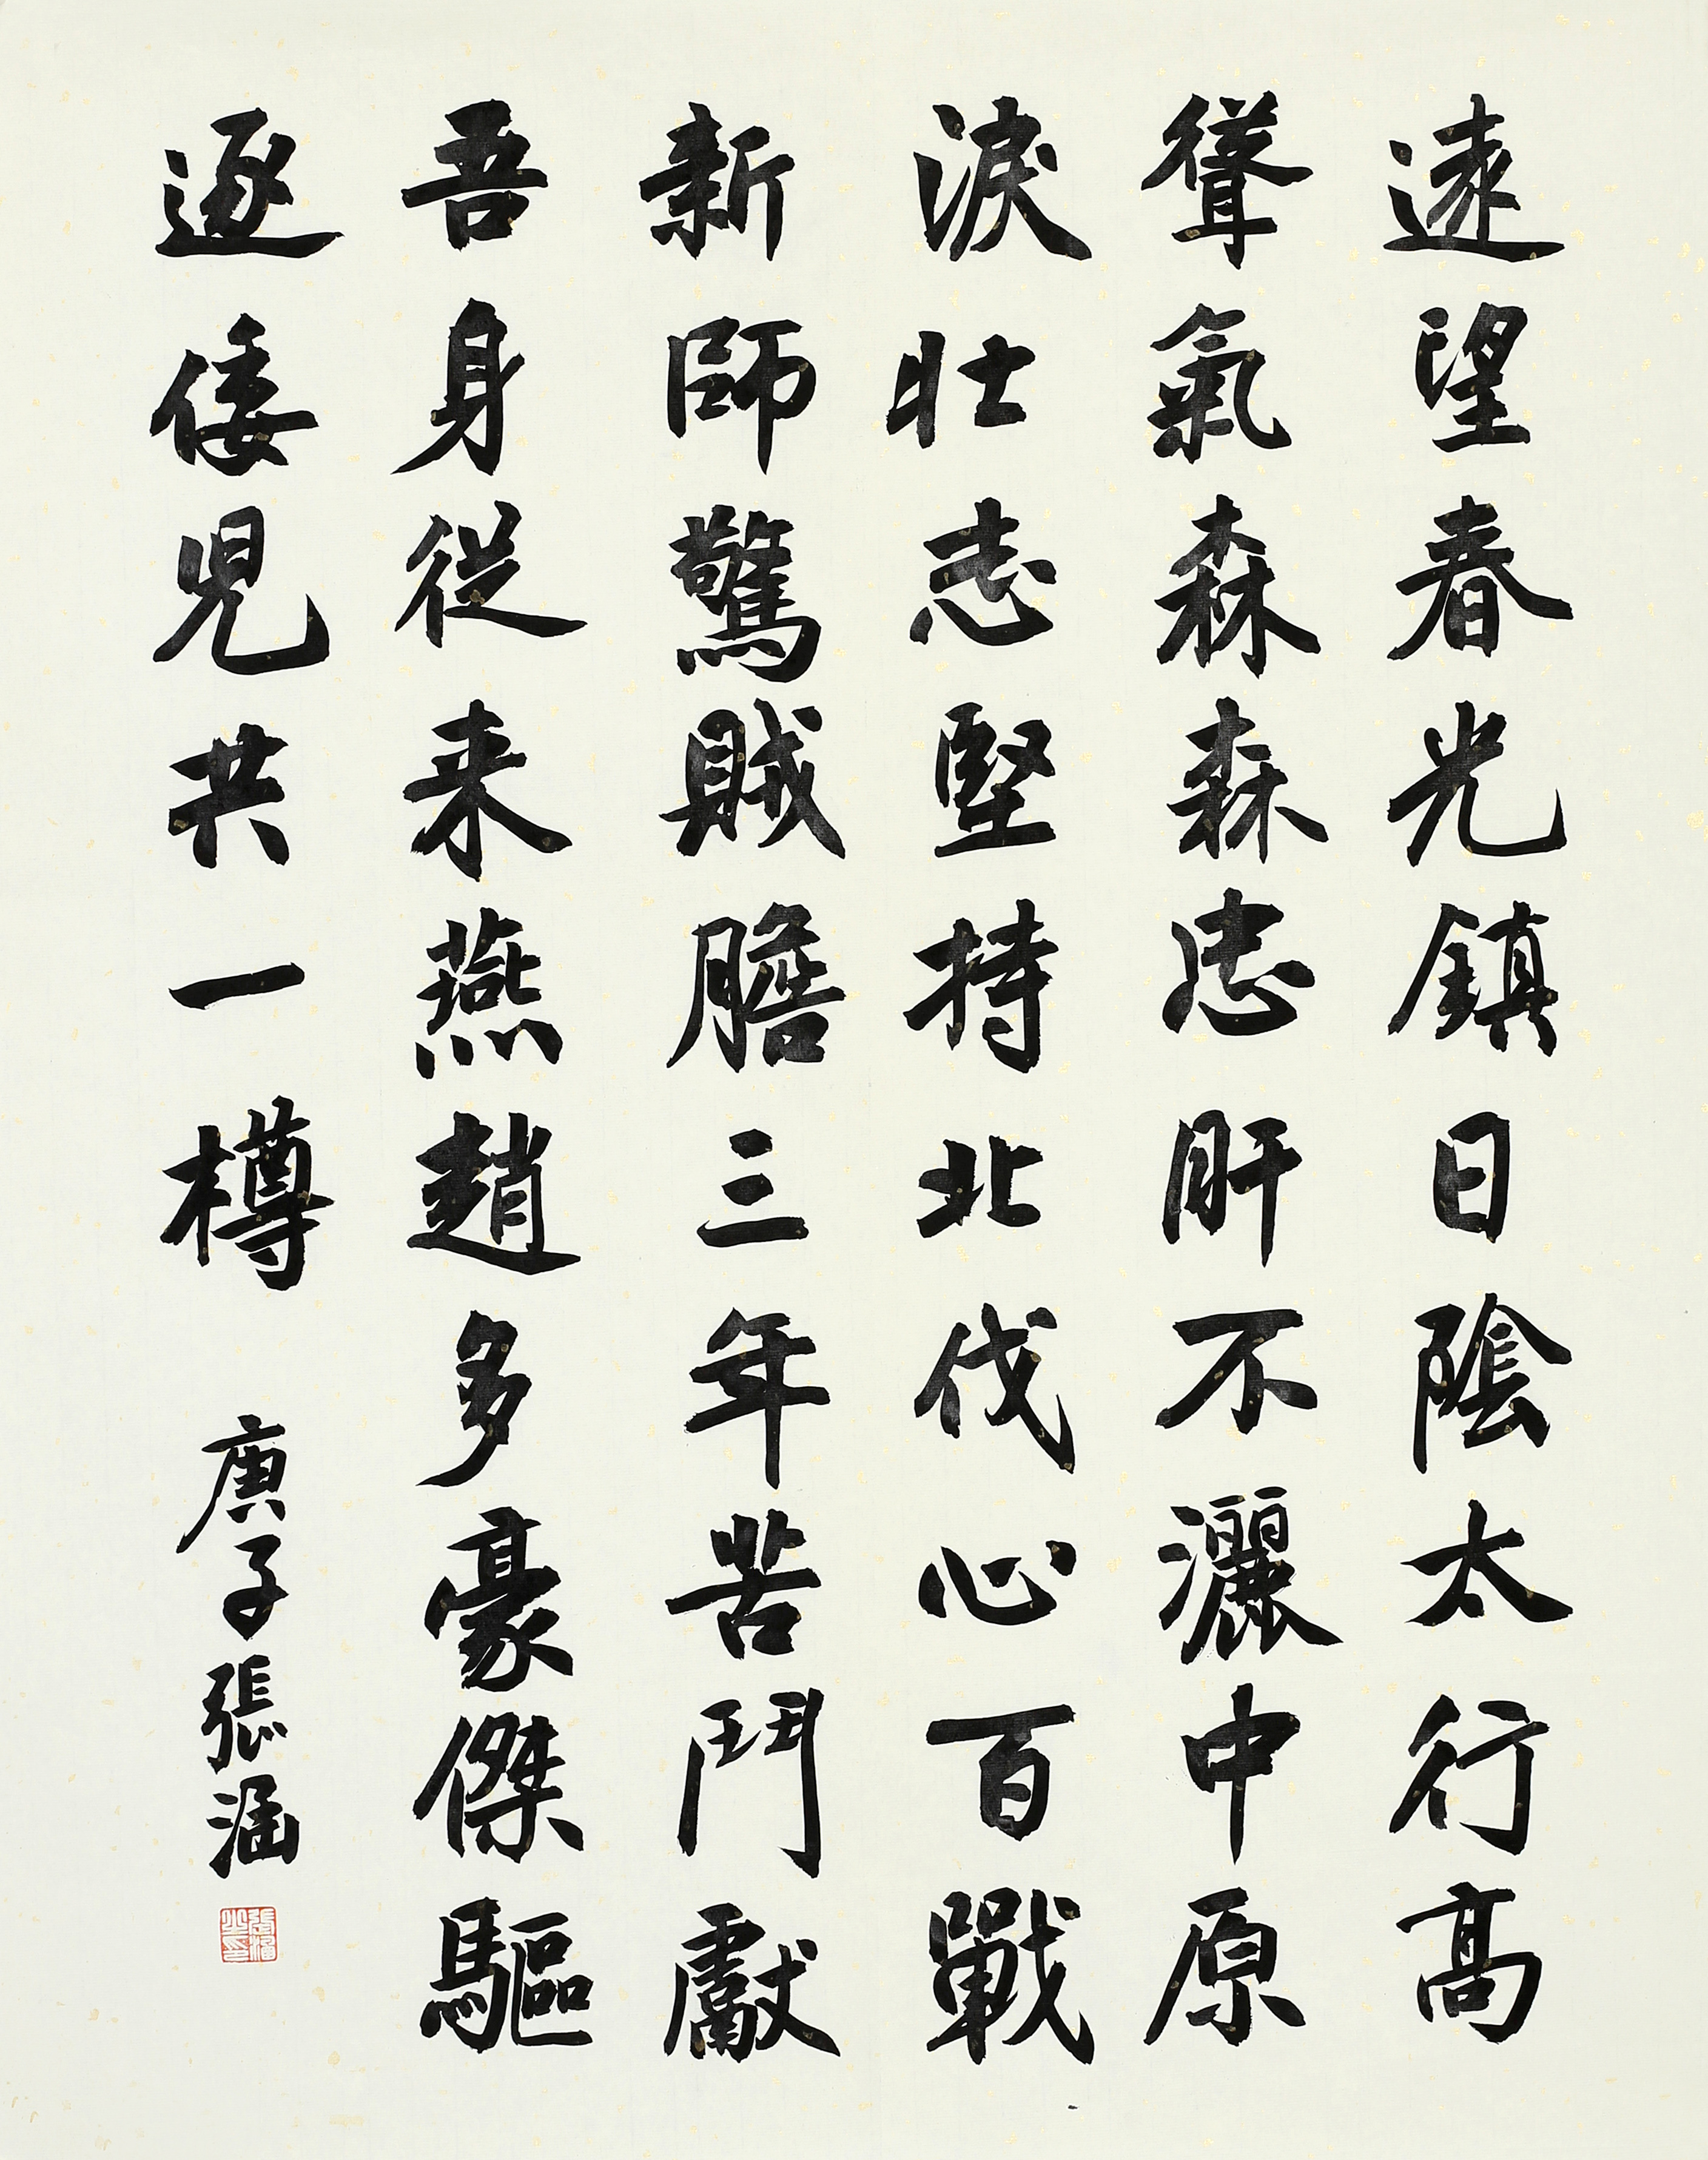 遠望春光鎮日陰太行高
聳氣森森忠肝不灑中原
淚壯志堅持北伐心百戰
新師驚賊膽三年苦鬥獻
吾身從來燕趙多豪傑驅
逐倭兒共一樽
庚子張涵